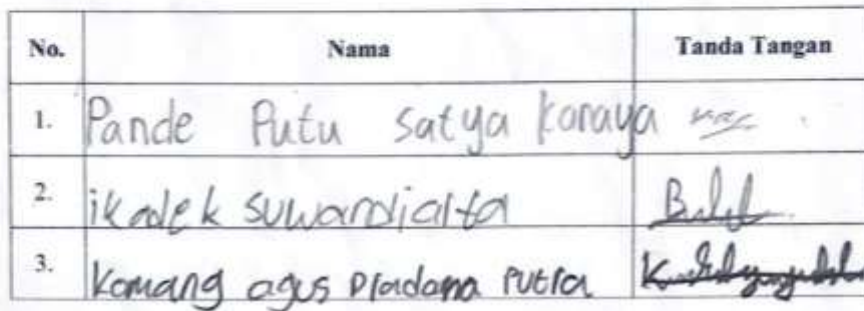 No. Nama Tanda Tangan
1. Pande Putu Satya Koraya
2. ikadek suwardiarta
3. Komang agus Pradana Putra